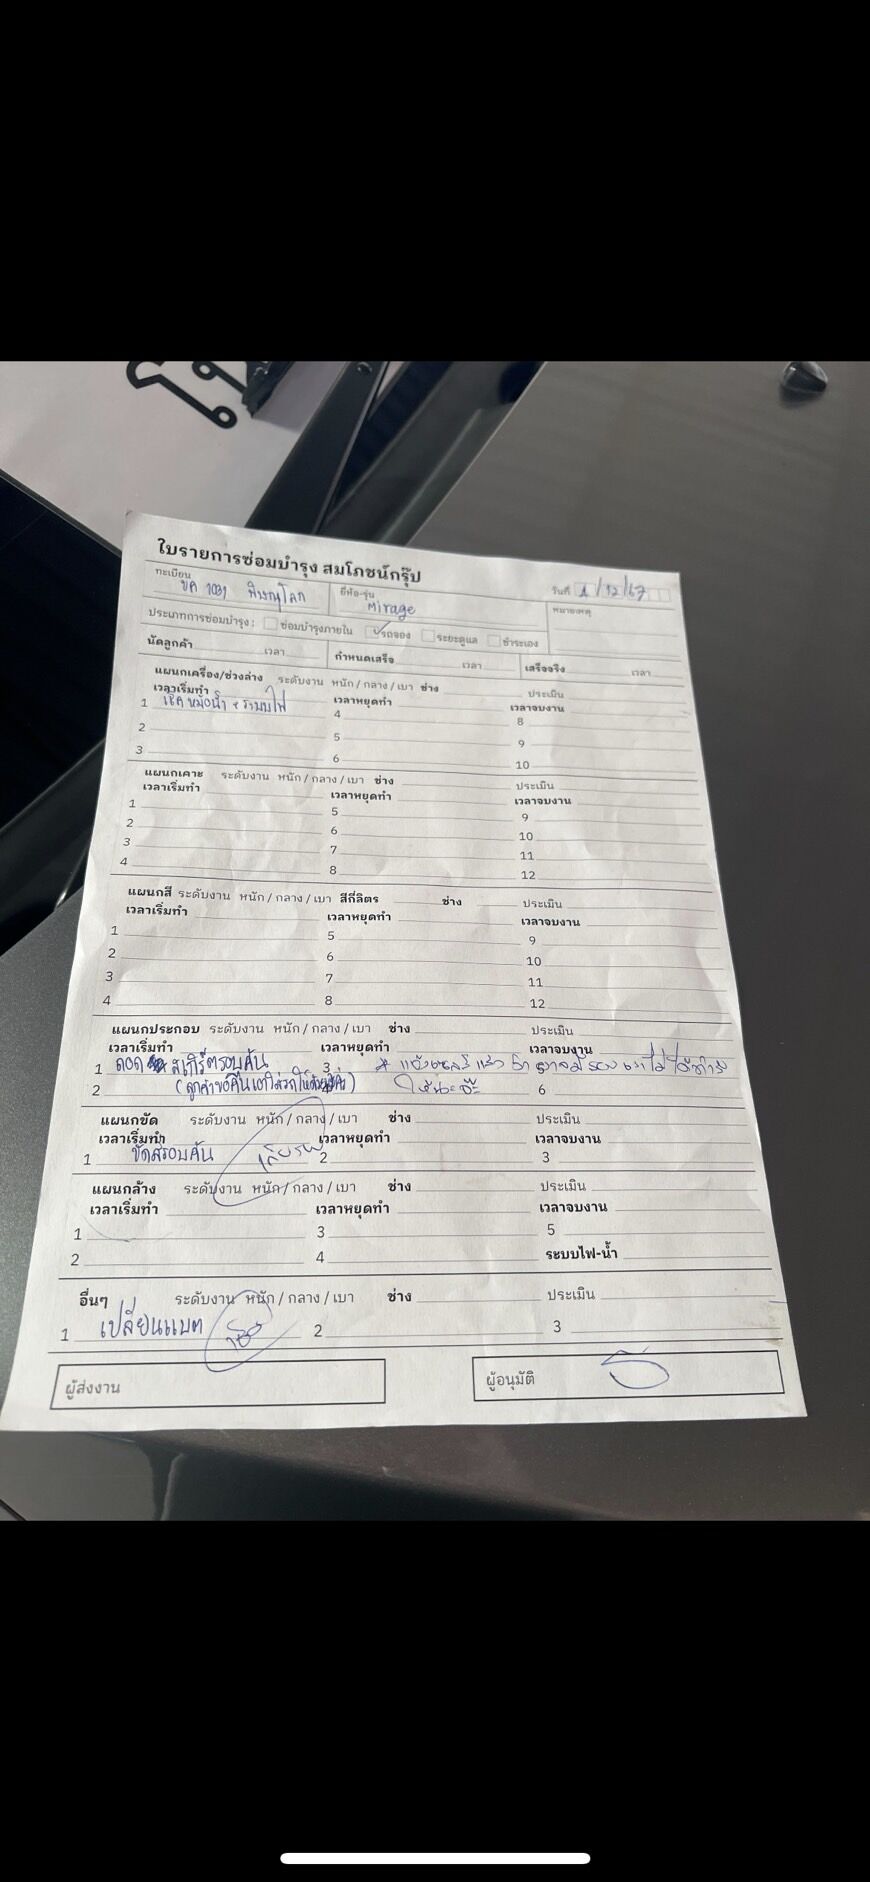 ใบรายการซ่อมบำรุง สมโภชน์กรุ๊ป
ทะเบียน ขค 1031 พิษณุโลก ยี่ห้อ-รุ่น Mirage วันที่ 1/12/67
หมายเหตุ
ประเภทการซ่อมบำรุง : ซ่อมบำรุงภายใน รถจอง ระยะดูแล ชำระเอง
นัดลูกค้า เวลา กำหนดเสร็จ เวลา เสร็จจริง เวลา
แผนกเครื่อง/ช่วงล่าง ระดับงาน หนัก / กลาง / เบา ช่าง ประเมิน
เวลาเริ่มทำ เวลาหยุดทำ เวลาจบงาน
1 เช็คหม้อน้ำ + ระบบไฟ 4 8
2 5 9
3 6 10
แผนกเคาะ ระดับงาน หนัก / กลาง / เบา ช่าง ประเมิน
เวลาเริ่มทำ เวลาหยุดทำ เวลาจบงาน
1 5 9
2 6 10
3 7 11
4 8 12
แผนกสี ระดับงาน หนัก / กลาง / เบา สีกี่ลิตร ช่าง ประเมิน
เวลาเริ่มทำ เวลาหยุดทำ เวลาจบงาน
1 5 9
2 6 10
3 7 11
4 8 12
แผนกประกอบ ระดับงาน หนัก / กลาง / เบา ช่าง ประเมิน
เวลาเริ่มทำ เวลาหยุดทำ เวลาจบงาน
1 ถอด สเกิร์ตรอบคัน 3 * แจ้งเซลล์แล้ว
2 (ลูกค้าขอคืนเอาใส่รถให้ด้วย) 6
แผนกขัด ระดับงาน หนัก / กลาง / เบา ช่าง ประเมิน
เวลาเริ่มทำ เวลาหยุดทำ เวลาจบงาน
1 ขัดสีรอบคัน 2 3
แผนกล้าง ระดับงาน หนัก / กลาง / เบา ช่าง ประเมิน
เวลาเริ่มทำ เวลาหยุดทำ เวลาจบงาน
1 3 5
2 4 ระบบไฟ-น้ำ
อื่นๆ ระดับงาน หนัก / กลาง / เบา ช่าง ประเมิน
1 เปลี่ยนแบต 2 3
ผู้ส่งงาน ผู้อนุมัติ